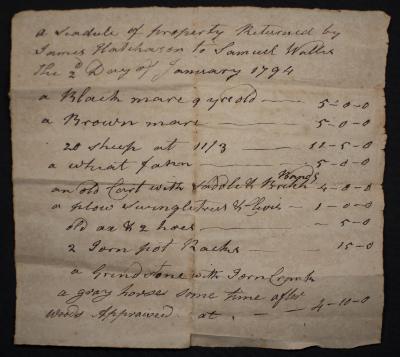 a Scedule of property Returned by
James Hutchason to Samuel Waller
the 2d Day of January 1794
a Black mare 9 yrs old — 5-0-0
a Brown mare — 5-0-0
20 sheep at 11/3 — 11-5-0
a wheat fann — 5-0-0
an old Cart with Saddle & Britch Bands 4-0-0
a plow Swingletrees & — 1-0-0
old ax & 2 hoes — 5-0
2 Iorn pot Racks 15-0
a Grindstone with Iorn Crank
a gray horse some time after
Woods Appraised at — 4-10-0